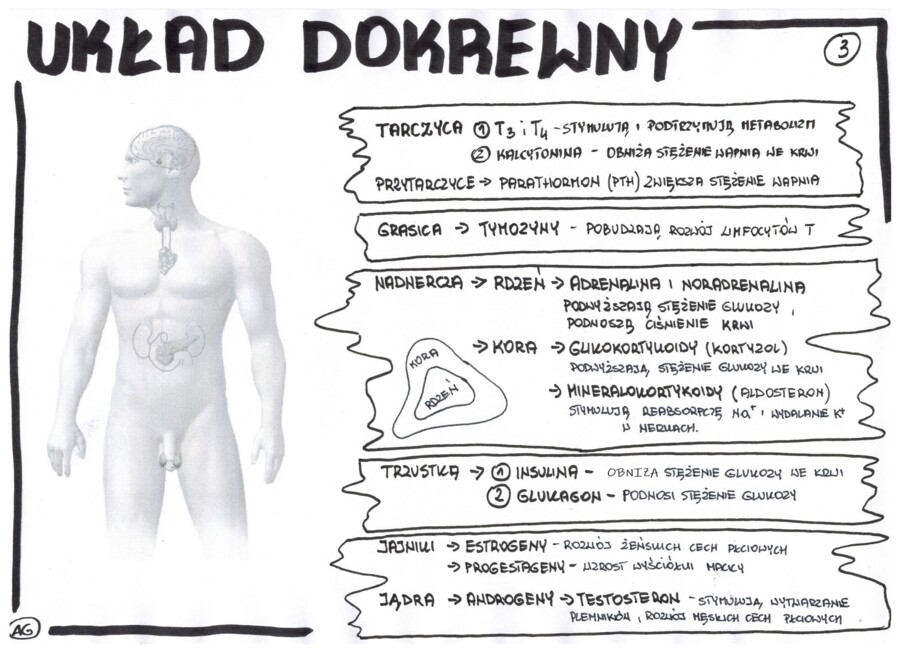 UKŁAD DOKREWNY
3
TARCZYCA ① T3 i T4 - STYMULUJĄ I PODTRZYMUJĄ METABOLIZM
② KALCYTONINA - OBNIŻA STĘŻENIE WAPNIA WE KRWI
PRZYTARCZYCE → PARATHORMON (PTH) ZWIĘKSZA STĘŻENIE WAPNIA
GRASICA → TYMOZYNY - POBUDZAJĄ ROZWÓJ LIMFOCYTÓW T
NADNERCZA → RDZEŃ → ADRENALINA I NORADRENALINA
PODWYŻSZAJĄ STĘŻENIE GLUKOZY,
PODNOSZĄ CIŚNIENIE KRWI
→ KORA → GLIKOKORTYKOIDY (KORTYZOL)
PODWYŻSZAJĄ STĘŻENIE GLUKOZY WE KRWI
KORA
RDZEŃ
→ MINERALOKORTYKOIDY (ALDOSTERON)
STYMULUJĄ REABSORPCJĘ Na+ I WYDALANIE K+
W NERKACH.
TRZUSTKA → ① INSULINA - OBNIŻA STĘŻENIE GLUKOZY WE KRWI
② GLUKAGON - PODNOSI STĘŻENIE GLUKOZY
JAJNIKI → ESTROGENY - ROZWÓJ ŻEŃSKICH CECH PŁCIOWYCH
→ PROGESTAGENY - WZROST WYŚCIÓŁKI MACICY
JĄDRA → ANDROGENY → TESTOSTERON - STYMULUJĄ WYTWARZANIE
PLEMNIKÓW, ROZWÓJ MĘSKICH CECH PŁCIOWYCH
AG